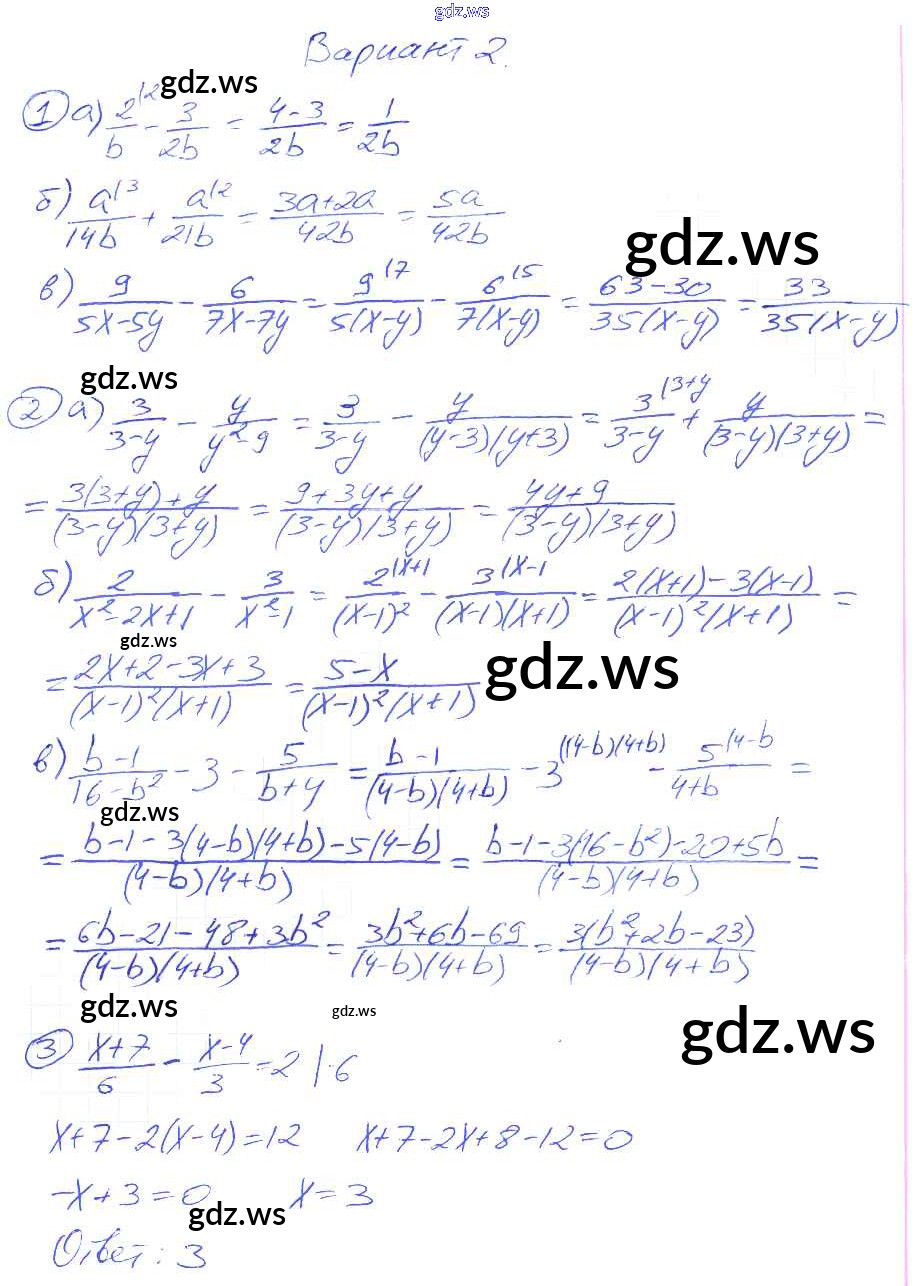 gdz.ws
Вариант 2.
gdz.ws
① а) 2^{|2}/b - 3/2b = (4-3)/2b = 1/2b
б) a^{|3}/14b + a^{|2}/21b = (3a+2a)/42b = 5a/42b
gdz.ws
в) 9/(5x-5y) - 6/(7x-7y) = 9^{|7}/5(x-y) - 6^{|5}/7(x-y) = (63-30)/35(x-y) = 33/35(x-y)
gdz.ws
② а) 3/(3-y) - y/(y²-9) = 3/(3-y) - y/(y-3)(y+3) = 3^{|3+y}/(3-y) + y/(3-y)(3+y) =
= (3(3+y)+y)/(3-y)(3+y) = (9+3y+y)/(3-y)(3+y) = (4y+9)/(3-y)(3+y)
б) 2/(x²-2x+1) - 3/(x²-1) = 2^{|x+1}/(x-1)² - 3^{|x-1}/(x-1)(x+1) = (2(x+1)-3(x-1))/(x-1)²(x+1) =
gdz.ws
= (2x+2-3x+3)/(x-1)²(x+1) = (5-x)/(x-1)²(x+1)
gdz.ws
в) (b-1)/(16-b²) - 3 - 5/(b+4) = (b-1)/(4-b)(4+b) - 3^{|(4-b)(4+b)} - 5^{|4-b}/(4+b) =
gdz.ws
= (b-1-3(4-b)(4+b)-5(4-b))/(4-b)(4+b) = (b-1-3(16-b²)-20+5b)/(4-b)(4+b) =
= (6b-21-48+3b²)/(4-b)(4+b) = (3b²+6b-69)/(4-b)(4+b) = 3(b²+2b-23)/(4-b)(4+b)
gdz.ws
gdz.ws
gdz.ws
③ (x+7)/6 - (x-4)/3 = 2 |·6
x+7-2(x-4)=12 x+7-2x+8-12=0
-x+3=0 x=3
gdz.ws
Ответ: 3